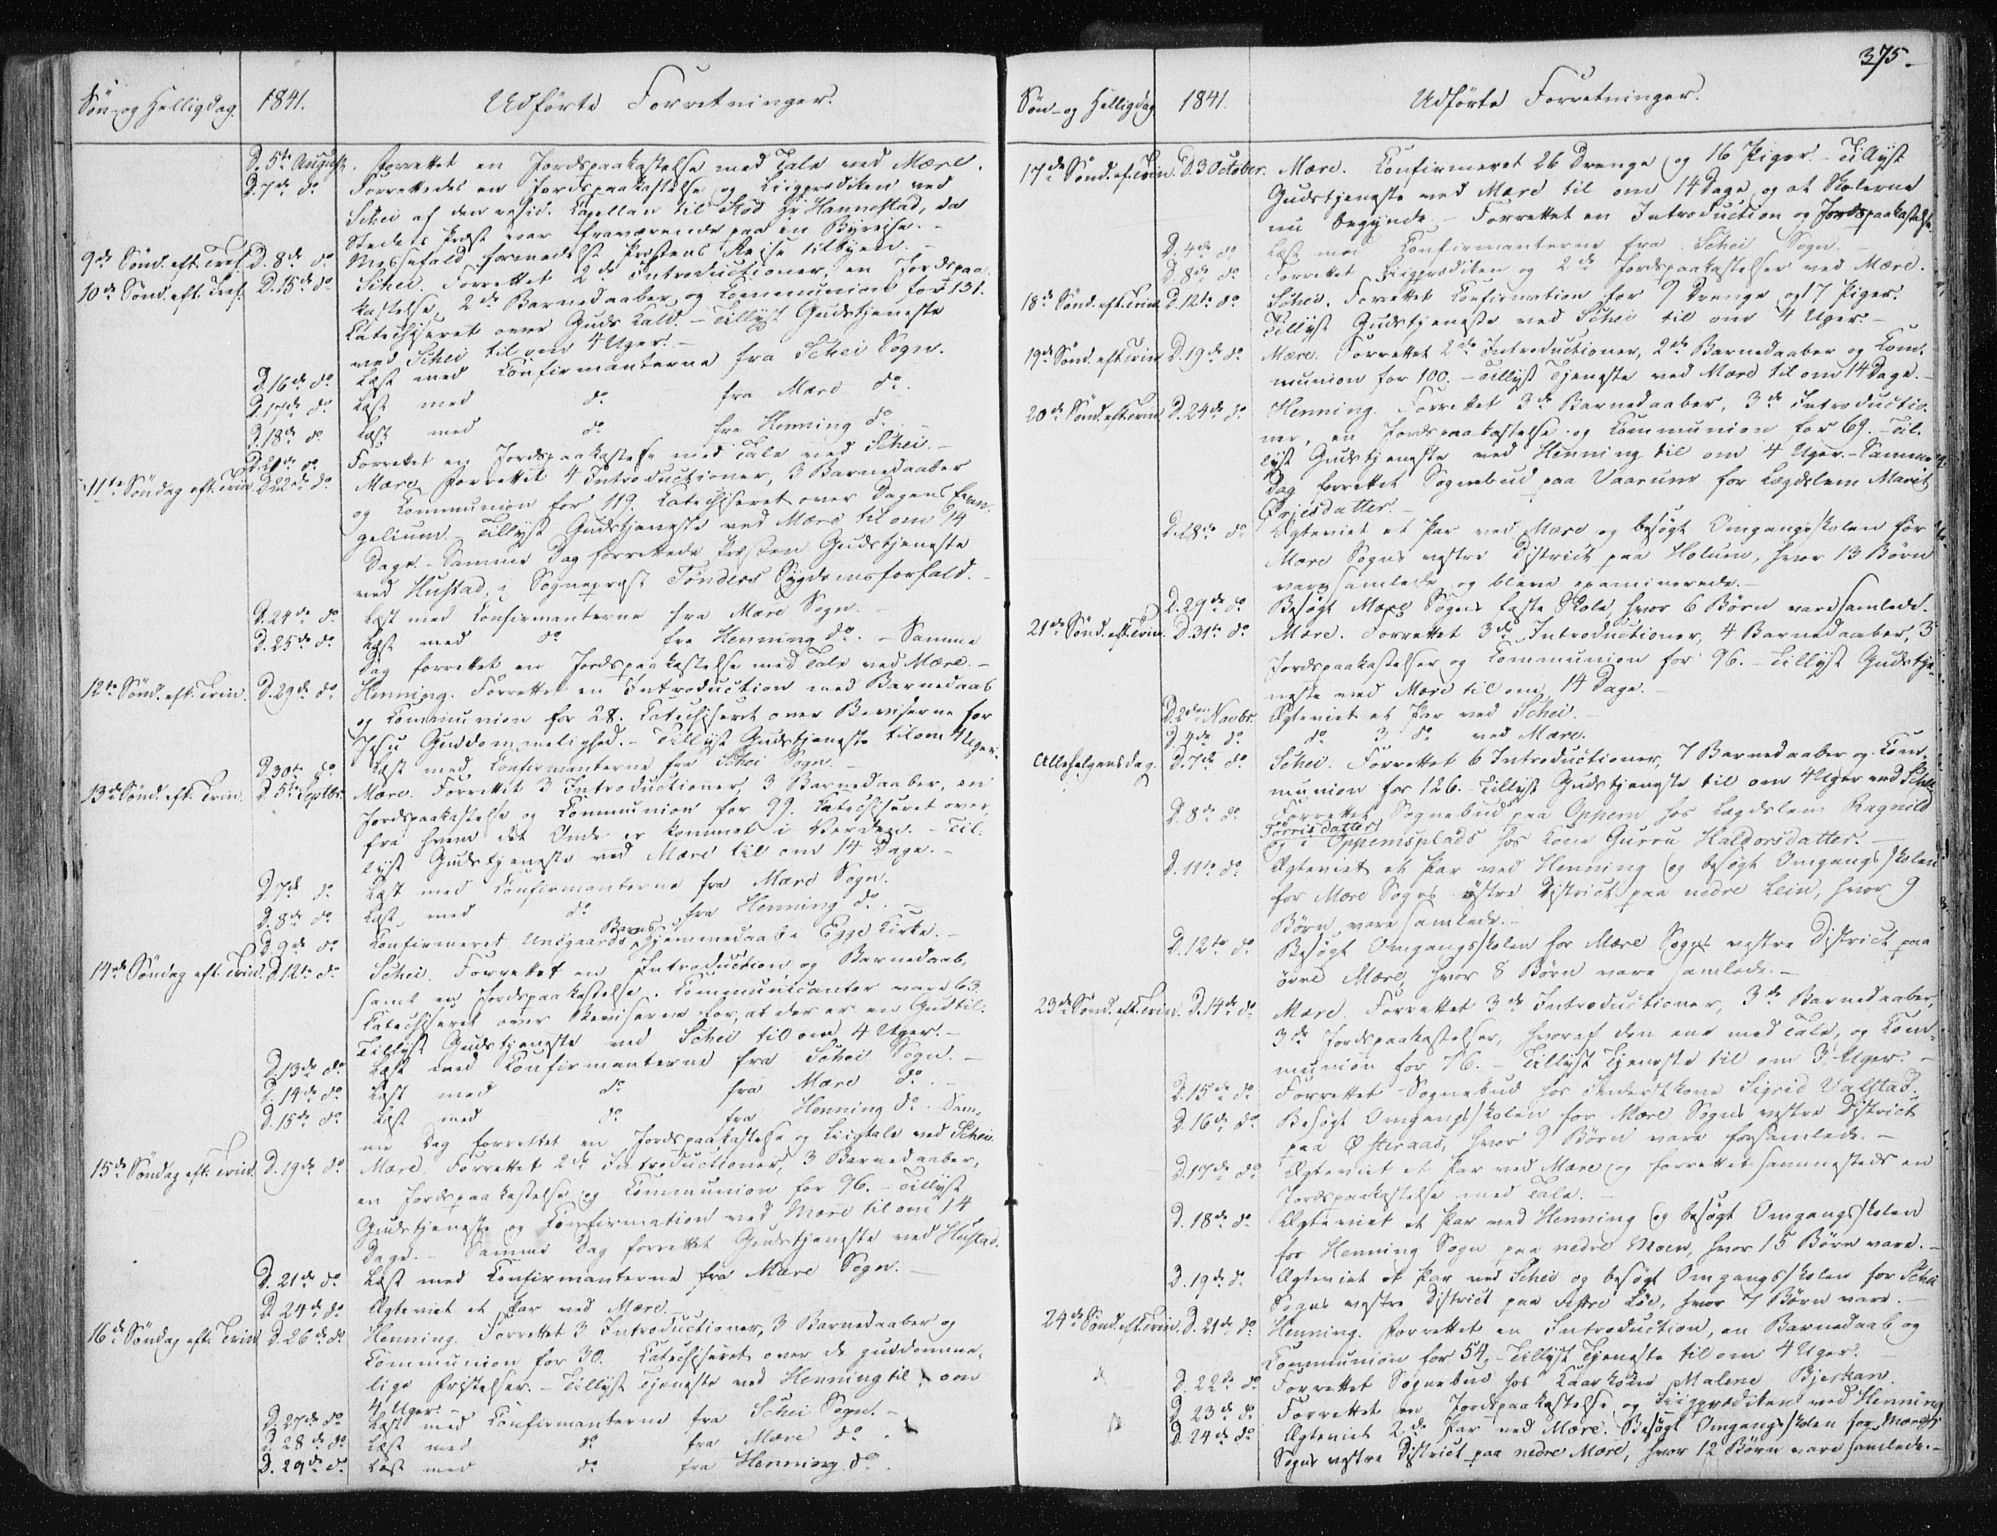 375.
Søn- og Helligdag. 1841. Udførte Forretninger.
D. 5te August. Forrettet en Jordspaakastelse med Tale ved Mære.
D. 7de do Forrettedes en Jordspaakastelse og Liigprædiken ved
Schei af den resid. Capellan til Stod Hr Hannestad, da
Stedets Præst var fraværende paa en Byreise. -
9de Sønd. eft. Tref. D. 8de do Messefald formedelst Præstens Reise til Byen. -
10de Sønd. eft. Tref. D. 15de do Schei. Forrettet 2de Introductioner, en Jordspaa-
kastelse, 2de Barnedaaber og Communion for 131.
Catechiseret over Guds Kald. - Tillyst Gudstjeneste
ved Schei til om 4 Uger. -
D. 16de do Læst med Confirmanterne fra Schei Sogn.
D. 17de do Læst med do fra Mære do.
D. 18de do Læst med do fra Henning do. -
D. 21de do Forrettet en Jordspaakastelse med Tale ved Schei. -
11te Søndag eft. Trin. D. 22de do Mære. Forrettet 4 Introductioner, 3 Barnedaaber
og Communion for 119. Catechiseret over Dagens Evan-
gelium. Tillyst Gudstjeneste ved Mære til om 14
Dage. - Samme Dag forrettede Præsten Gudstjeneste
ved Hustad, i Sognepræst Tønders Sygdomsforfald. -
D. 24de do Læst med Confirmanterne fra Mære Sogn. -
D. 25de do Læst med do fra Henning do. - Samme
Dag forrettet en Jordspaakastelse med Tale ved Mære. -
12te Sønd. eft. Trin. D. 29de do Henning. Forrettet en Introduction med Barnedaab
og Communion for 28. Catechiseret over Beviserne for
Jesu Guddommelighed. - Tillyst Gudstjeneste til om 4 Uger.
D. 30te do Læst med Confirmanterne fra Schei Sogn. -
13de Sønd. eft. Trin. D. 5te Septbr. Mære. Forrettet 3 Introductioner, 3 Barnedaaber, en
Jordspaakastelse og Communion for 99. Catechiseret over,
fra hvem det Onde er kommet i Verden. - Til-
lyst Gudstjeneste ved Mære til om 14 Dage. -
D. 7de do Læst med Confirmanterne fra Mære Sogn.
D. 8de do Læst med do fra Henning do. -
D. 9de do Confirmeret Barns Hjemmedaab i Egge Kirke. -
14de Søndag eft. Trin. D. 12te do Schei. Forrettet en Introduction og Barnedaab,
samt en Jordspaakastelse. Communicanter vare 63.
Catechiseret over Beviserne for, at der er en Gud til.
Tillyst Gudstjeneste ved Schei til om 4 Uger. -
D. 13de do Læst med Confirmanterne fra Schei Sogn. -
D. 14de do Læst med do fra Mære do. -
D. 15de do Læst med do fra Henning do. Sam-
me Dag forrettet en Jordspaakastelse og Liigtale ved Schei.
15de Søndag eft. Trin. D. 19de do Mære. Forrettet 2de Introductioner, 3 Barnedaaber,
en Jordspaakastelse og Communion for 96. - Tillyst
Gudstjeneste og Confirmation ved Mære til om 14
Dage. - Samme Dag forrettet Gudstjeneste ved Hustad.
D. 21de do Læst med Confirmanterne fra Mære Sogn. -
D. 24de do Ægteviet et Par ved Mære. -
16de Søndag eft. Trin. D. 26de do Henning. Forrettet 3 Introductioner, 3 Barnedaaber og
Communion for 30. Catechiseret over de guddomme-
lige Fristelser. - Tillyst Tjeneste ved Henning til om
4 Uger. -
D. 27de do Læst med Confirmanterne fra Schei Sogn. -
D. 28de do Læst med do fra Mære do. -
D. 29de do Læst med do fra Henning do.
Søn- og Helligdag 1841. Udførte Forretninger.
17de Sønd. ef. Trin. D. 3 October. Mære. Confirmeret 26 Drenge og 16 Piger. - Tillyst
Gudstjeneste ved Mære til om 14 Dage, og at Skolerne
nu begynde. - Forrettet en Introduction og Jordspaakastelse.
D. 4de do Læst med Confirmanterne fra Schei Sogn. -
D. 8de do Forrettet Liigprædiken og 2de Jordspaakastelser ved Mære.
18de Sønd. eft. Trin. D. 12te do Schei. Forrettet Confirmation for 9 Drenge og 17 Piger.
Tillyst Gudstjeneste ved Schei til om 4 Uger. -
19de Sønd. eft. Trin. D. 19de do Mære. Forrettet 2de Introductioner, 2de Barnedaaber og Com-
munion for 100. - Tillyst Tjeneste ved Mære til om 14 Dage. -
20de Sønd. eft. Trin. D. 24de do Henning. Forrettet 3de Barnedaaber, 3de Introductio-
ner, en Jordspaakastelse og Communion for 69. - Til-
lyst Gudstjeneste ved Henning til om 4 Uger. - Samme
Dag forrettet Sognebud paa Vaarum for Lægdslem Marit
D. 28de do Ægteviet et Par ved Mære og besøgt Omgangsskolen for
Mære Sogns vestre District paa Holum, hvor 13 Børn
vare samlede og bleve examinerede. -
D. 29de do Besøgt Mære Sogns faste Skole, hvor 6 Børn vare samlede.
21de Sønd. eft. Trin. D. 31te do Mære. Forrettet 3de Introductioner, 4 Barnedaaber, 3
Jordspaakastelser og Communion for 96. - Tillyst Gudstje-
neste ved Mære til om 14 Dage. -
D. 2den Novbr. Ægteviet et Par ved Schei. -
D. 4de do do 3 do ved Mære.
Allehelgensdag. D. 7de do Schei. Forrettet 6 Introductioner, 7 Barnedaaber og Com-
munion for 126. - Tillyst Gudstjeneste til om 4 Uger ved Schei
D. 8de do Forrettet Sognebud paa Oppem hos Lægdslem Ragnild
Torrisdatter
og i Oppemsplads hos Kone Gurru Haldorsdatter. -
D. 11te do Ægteviet et Par ved Henning og besøgt Omgangsskolen
for Mære Sogns østre District paa nedre Lein, hvor 9
Børn vare samlede. -
D. 12te do Besøgt Omgangsskolen for Mære Sogns vestre District paa
øvre Mære, hvor 8 Børn vare samlede. -
23de Sønd. eft. Trin. D. 14de do Mære. Forrettet 3de Introductioner, 3de Barnedaaber,
3de Jordspaakastelser, hvoraf den ene med Tale, og Com-
munion for 76. - Tillyst Tjeneste til om 3 Uger. -
D. 15de do Forrettet Sognebud hos Inderstkone Sigrid Valstad.
D. 16de do Besøgt Omgangsskolen for Mære Sogns vestre District
paa Østeraas, hvor 9 Børn vare forsamlede. -
D. 17de do Ægteviet et Par ved Mære og forrettet sammesteds en
Jordspaakastelse med Tale. -
D. 18de do Ægteviet et Par ved Henning og besøgt Omgangsskolen
for Henning Sogn paa nedre Moen, hvor 15 Børn vare. -
D. 19de do Ægteviet et Par ved Schei og besøgt Omgangsskolen for Schei
Sogns vestre District paa østre Løe, hvor 7 Børn vare. -
24de Sønd. eft. Trin. D. 21de do Henning. Forrettet en Introduction, en Barnedaab og
Communion for 54. - Tillyst Tjeneste til om 4 Uger. -
D. 22de do Forrettet Sognebud hos Kaarkone Malene Bjerkan.
D. 23de do Forrettet en Jordspaakastelse og Liigprædiken ved Henning
D. 24de do Ægteviet 2de Par ved Mære. Besøgt Omgangsskolen for Mære
Sogns vestre District paa nedre Mære, hvor 12 Børn vare samlede. -